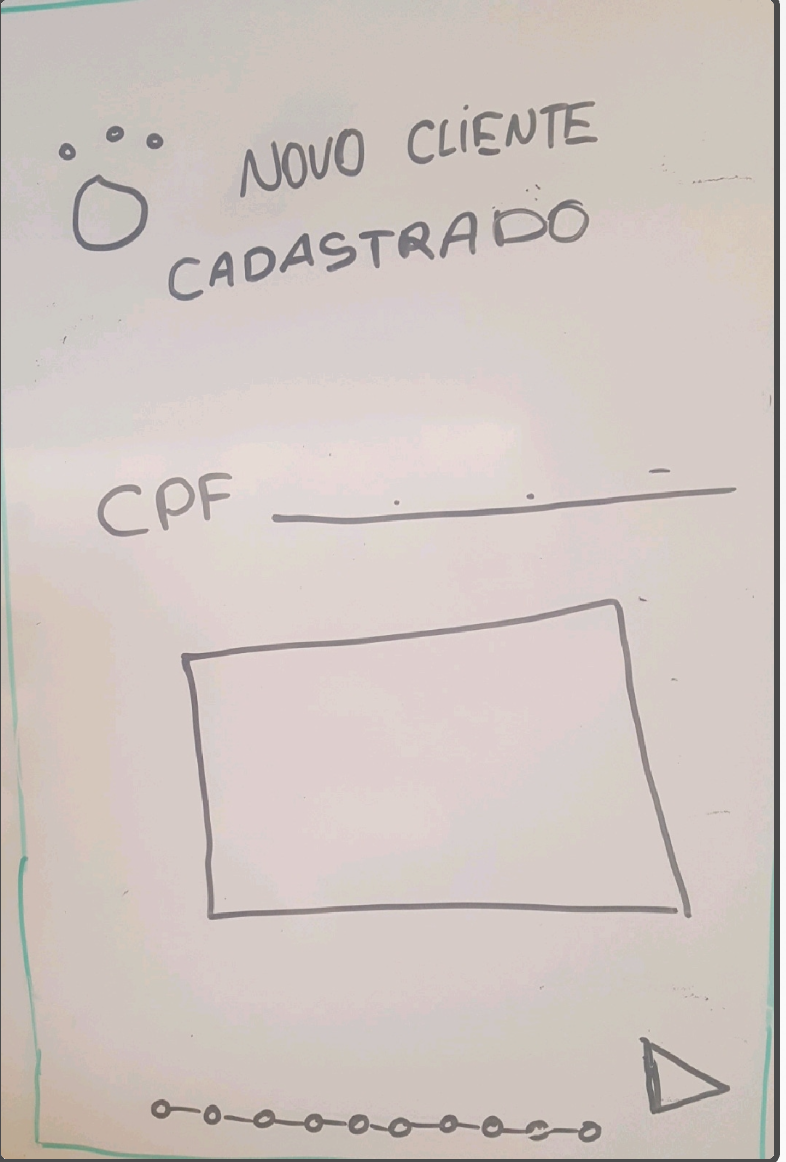 NOVO CLIENTE
CADASTRADO
CPF ___.___.___-__